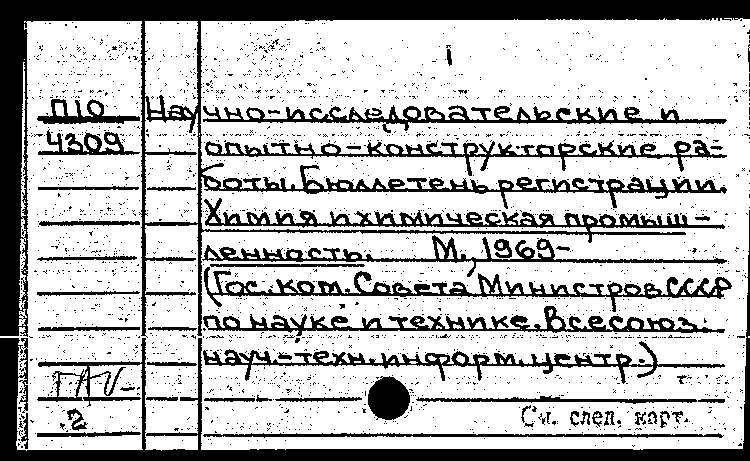 1
П10 Научно-исследовательские и
4309 опытно-конструкторские ра-
боты. Бюллетень регистрации.
Химия и химическая промыш-
ленность. М., 1969-
(Гос. ком. Совета Министров СССР
по науке и технике. Всесоюз.
науч.-техн. информ. центр.)
2
См. след. карт.